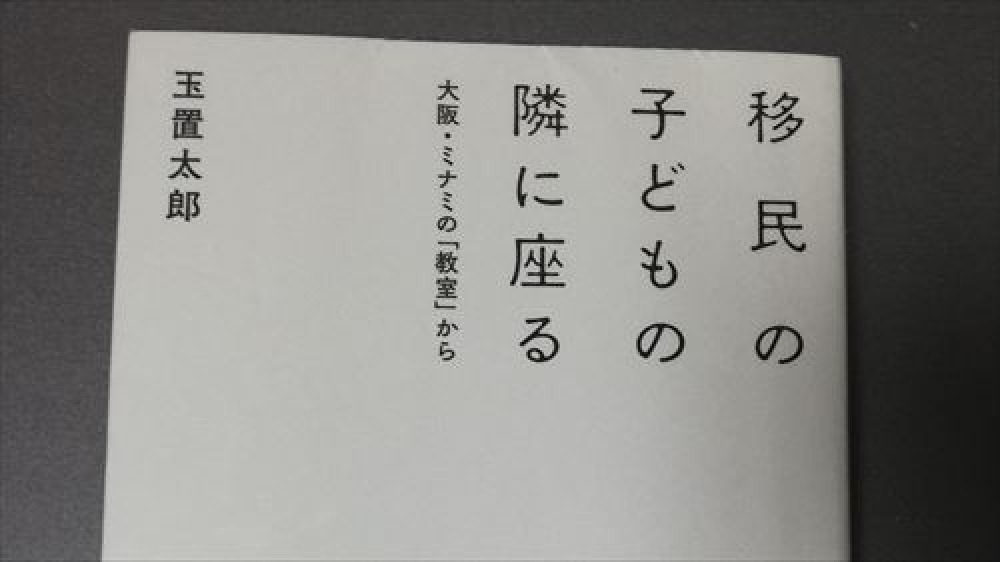 移民の
子どもの
隣に座る
大阪・ミナミの「教室」から
玉置太郎